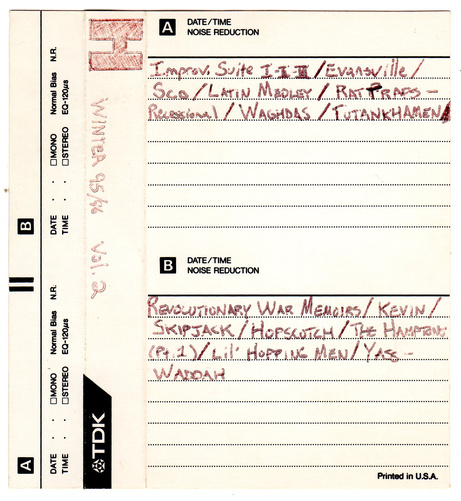 A DATE/TIME
NOISE REDUCTION
Improv. Suite I-II-III / Evansville /
Sco / Latin Medley / Rat Praps –
Recessional / Waghdas / Tutankhamen
B DATE/TIME
NOISE REDUCTION
Revolutionary War Memoirs / Kevin /
Skipjack / Hopscotch / The Hamptons
(Pt. 1) / Lil' Hopping Men / Yass –
Waddah
Printed in U.S.A.
H
WINTER 95/96 Vol. 2
TDK
B
DATE . . □MONO Normal Bias N.R.
TIME . . □STEREO EQ•120μs
A
DATE . . □MONO Normal Bias N.R.
TIME . . □STEREO EQ•120μs